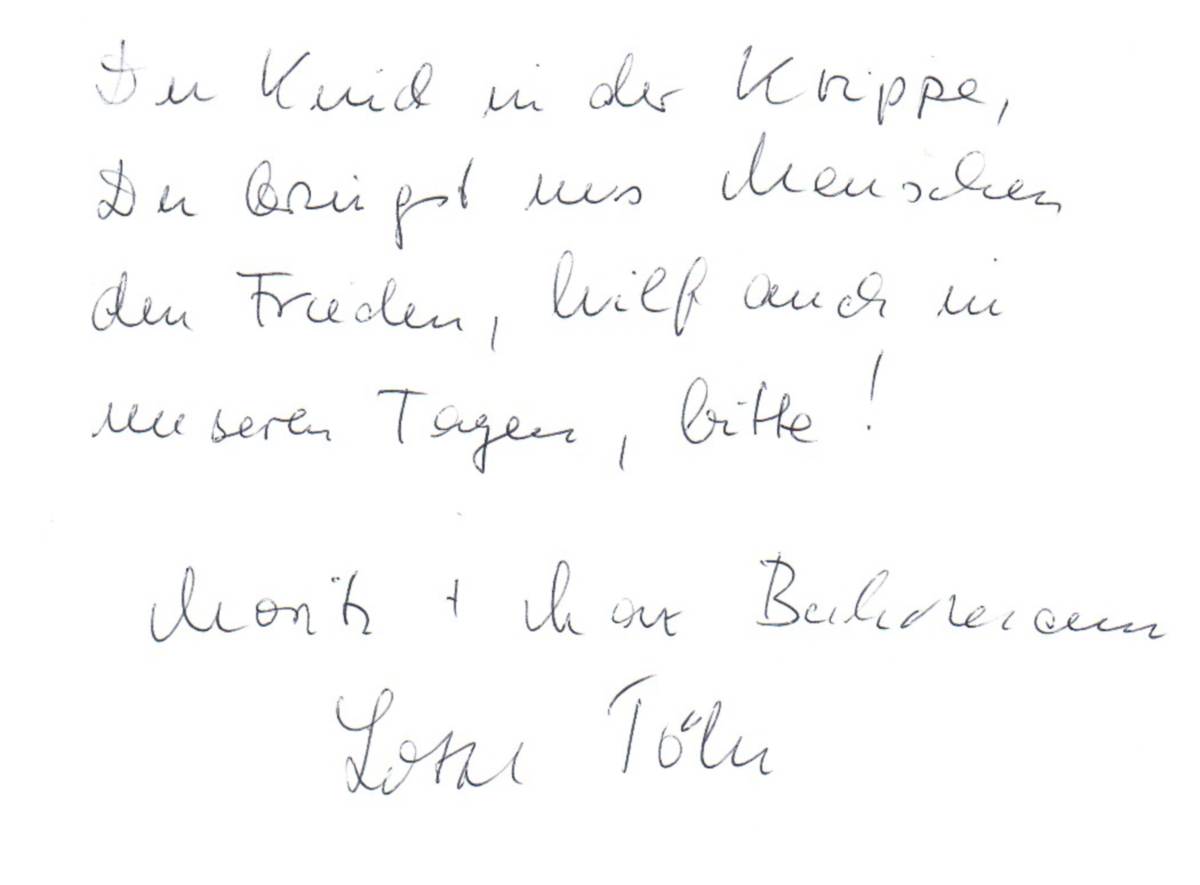 Du Kind in der Krippe,
Du bringst uns Menschen
den Frieden, hilf auch in
unseren Tagen, bitte!
Moritz + Max